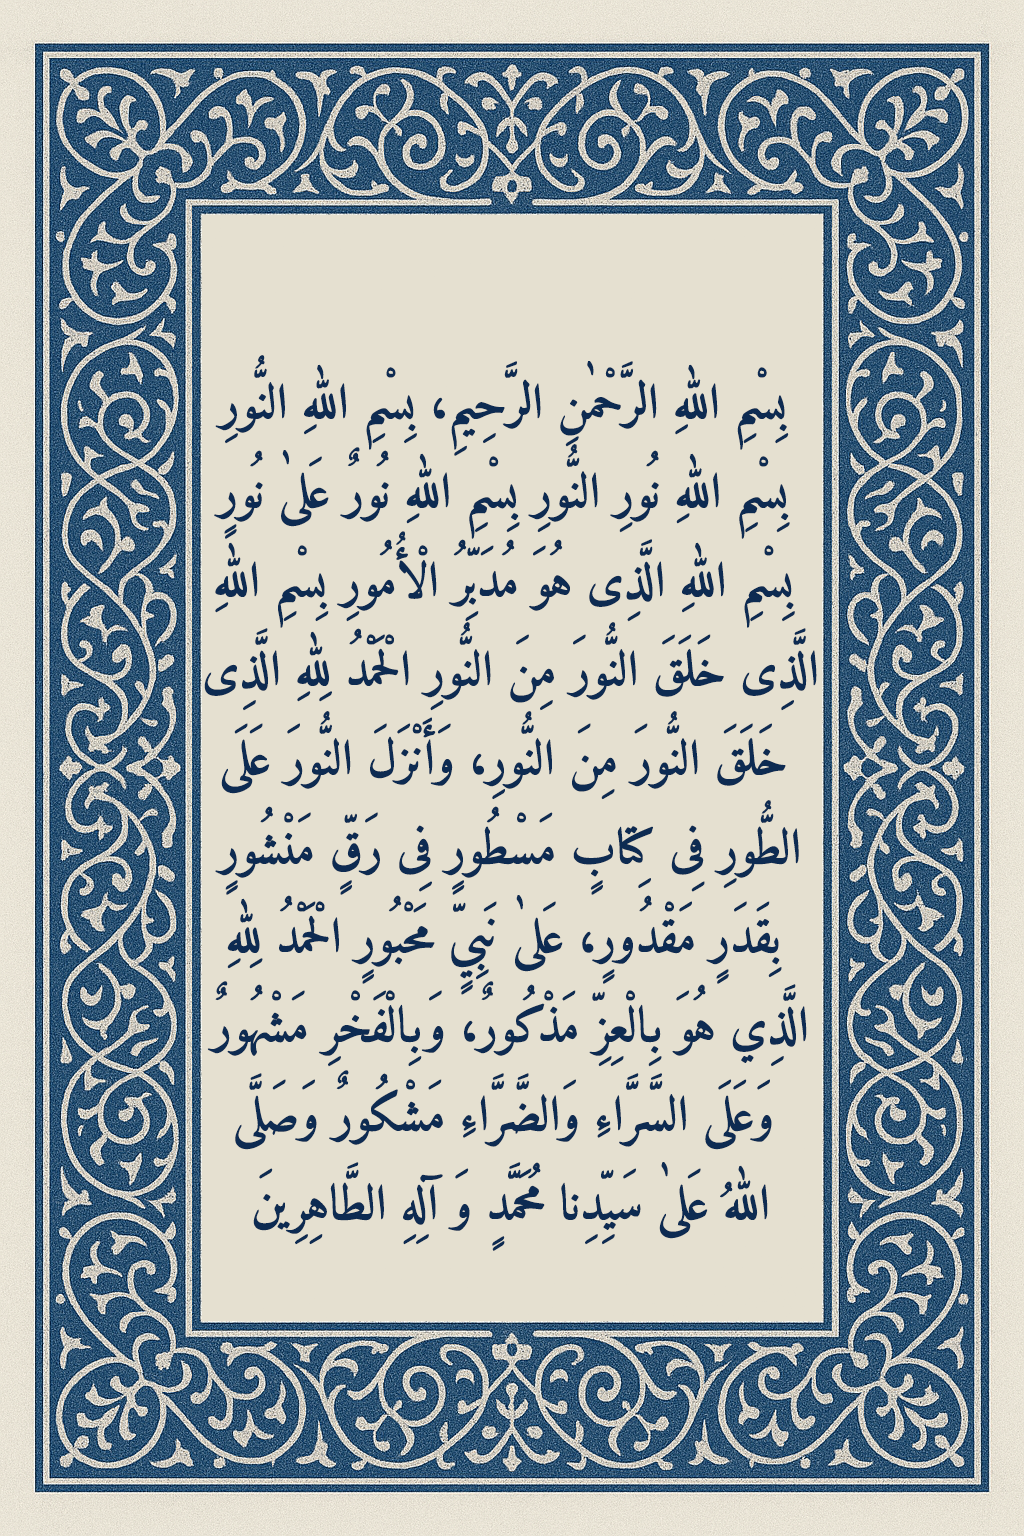 بِسْمِ اللهِ الرَّحْمٰنِ الرَّحِيمِ، بِسْمِ اللهِ النُّورِ
بِسْمِ اللهِ نُورِ النُّورِ بِسْمِ اللهِ نُورٌ عَلىٰ نُورٍ
بِسْمِ اللهِ الَّذِى هُوَ مُدَبِّرُ الْأُمُورِ بِسْمِ اللهِ
الَّذِى خَلَقَ النُّورَ مِنَ النُّورِ الْحَمْدُ لِلهِ الَّذِى
خَلَقَ النُّورَ مِنَ النُّورِ، وَأَنْزَلَ النُّورَ عَلَى
الطُّورِ فِى كِتابٍ مَسْطُورٍ فِى رَقٍّ مَنْشُورٍ
بِقَدَرٍ مَقْدُورٍ، عَلىٰ نَبِيٍّ مَحْبُورٍ الْحَمْدُ لِلهِ
الَّذِي هُوَ بِالْعِزِّ مَذْكُورٌ، وَبِالْفَخْرِ مَشْهُورٌ
وَعَلَى السَّرَّاءِ وَالضَّرَّاءِ مَشْكُورٌ وَصَلَّى
اللهُ عَلىٰ سَيِّدِنا مُحَمَّدٍ وَ آلِهِ الطَّاهِرِينَ